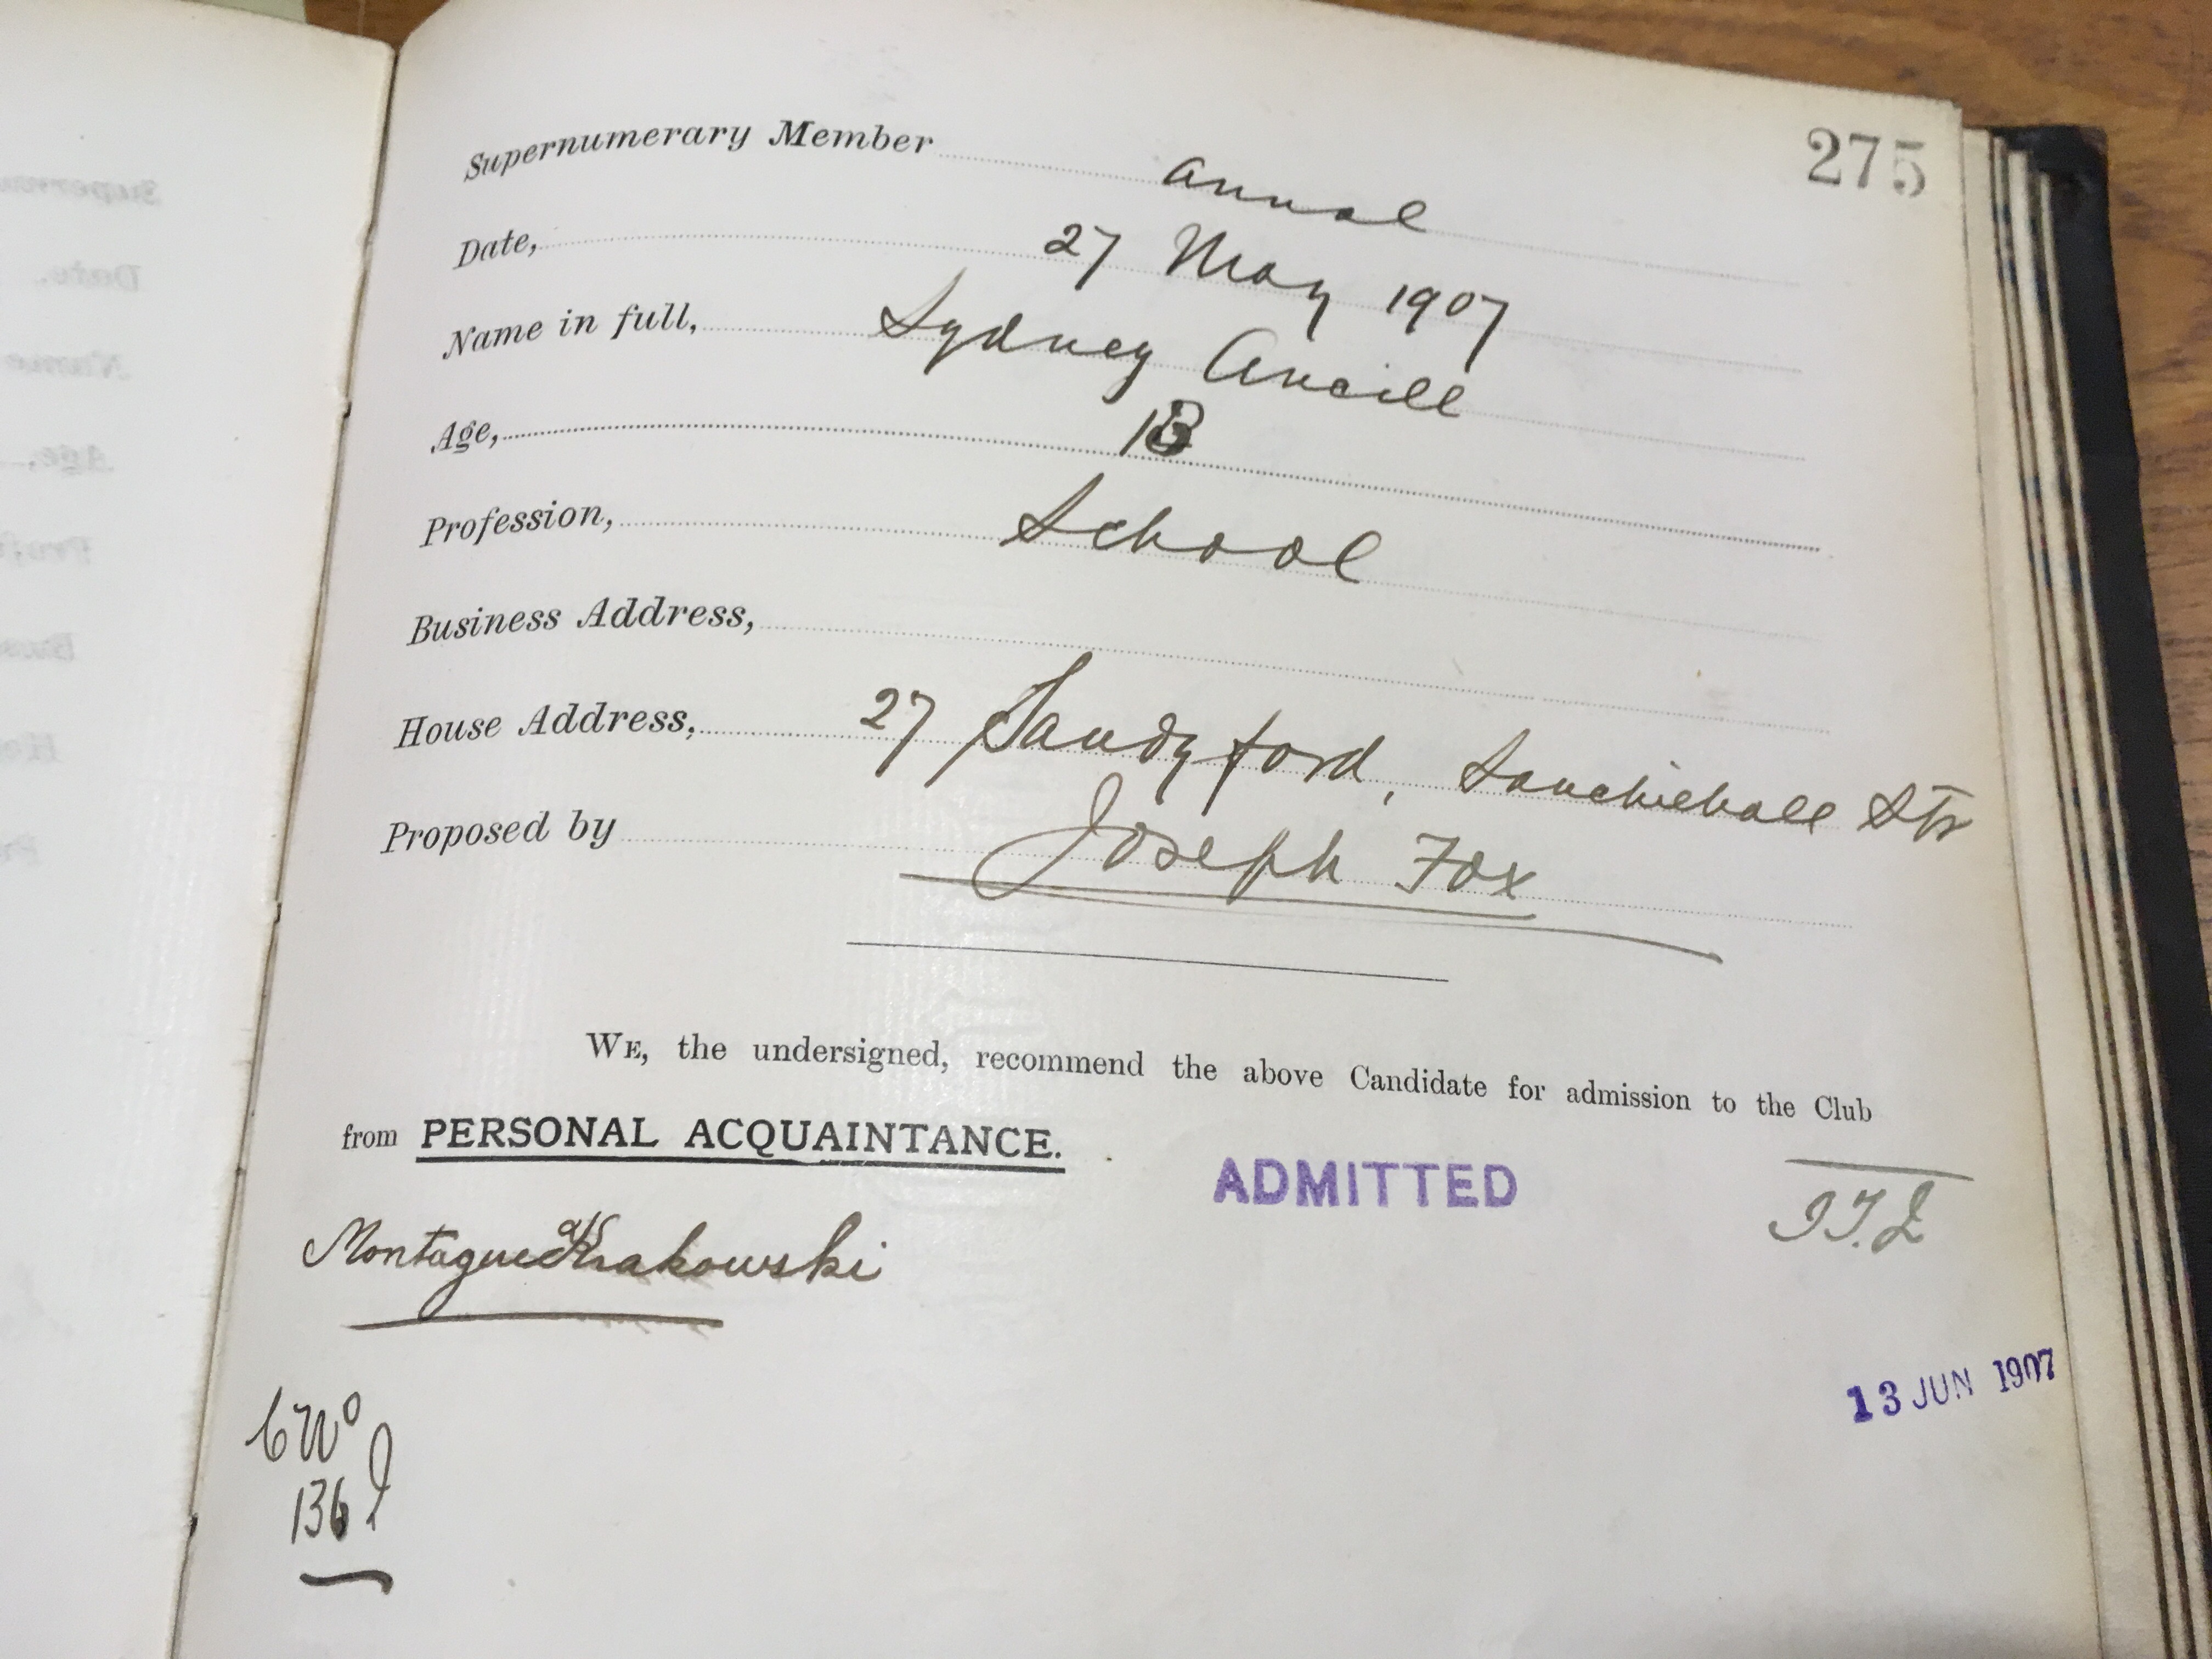 275
Supernumerary Member annual
Date, 27 May 1907
Name in full, Sydney Ancill
Age, 13
Profession, School
Business Address,
House Address, 27 Sandyford, Sauchiehall Str
Proposed by Joseph Fox
WE, the undersigned, recommend the above Candidate for admission to the Club
from PERSONAL ACQUAINTANCE.
ADMITTED
Montague Krakowski
13 JUN 1907
136